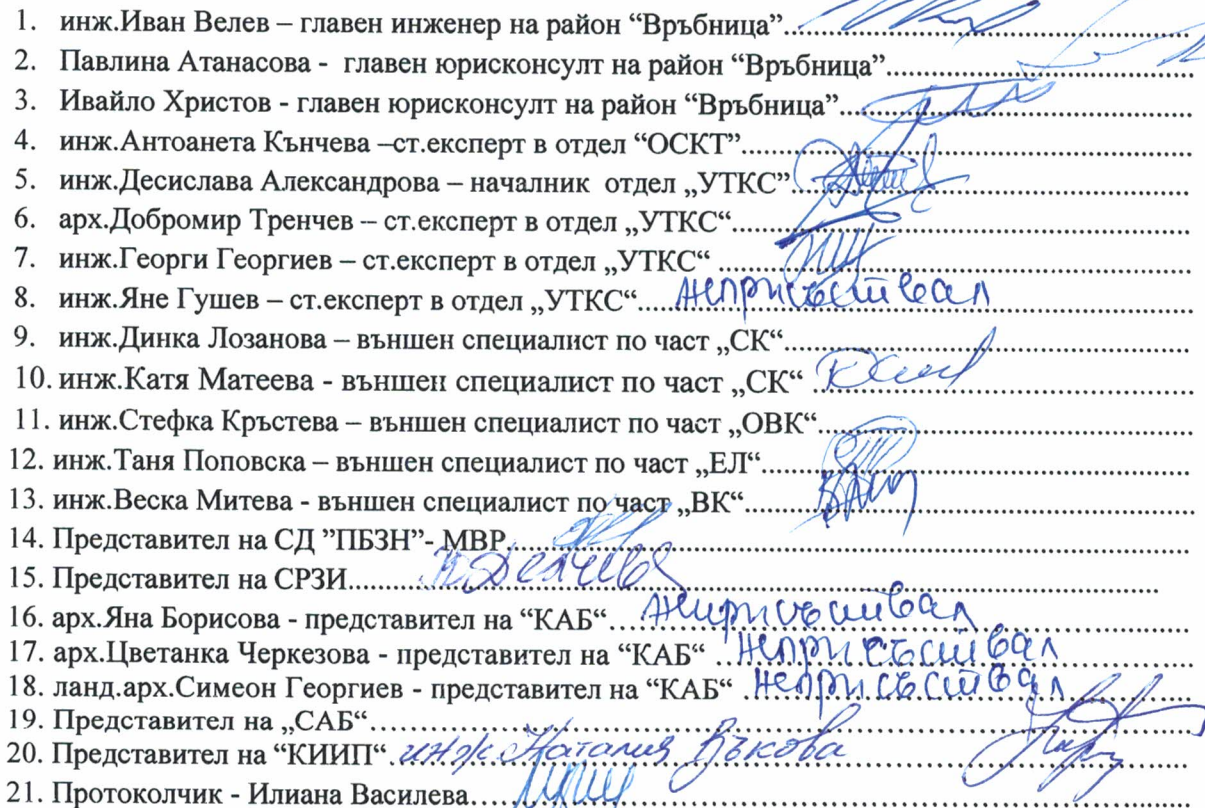 1. инж.Иван Велев – главен инженер на район “Връбница”
2. Павлина Атанасова - главен юрисконсулт на район “Връбница”
3. Ивайло Христов - главен юрисконсулт на район “Връбница”
4. инж.Антоанета Кънчева –ст.експерт в отдел “ОСКТ”
5. инж.Десислава Александрова – началник отдел „УТКС“
6. арх.Добромир Тренчев – ст.експерт в отдел „УТКС“
7. инж.Георги Георгиев – ст.експерт в отдел „УТКС“
8. инж.Яне Гушев – ст.експерт в отдел „УТКС“ неприсъствал
9. инж.Динка Лозанова – външен специалист по част „СК“
10. инж.Катя Матеева - външен специалист по част „СК“
11. инж.Стефка Кръстева – външен специалист по част „ОВК“
12. инж.Таня Поповска – външен специалист по част „ЕЛ“
13. инж.Веска Митева - външен специалист по част „ВК“
14. Представител на СД ”ПБЗН”- МВР
15. Представител на СРЗИ Делчева
16. арх.Яна Борисова - представител на “КАБ“ неприсъствал
17. арх.Цветанка Черкезова - представител на “КАБ“ неприсъствал
18. ланд.арх.Симеон Георгиев - представител на “КАБ“ неприсъствал
19. Представител на „САБ“
20. Представител на “КИИП“ инж. Наталия Въкова
21. Протоколчик - Илиана Василева